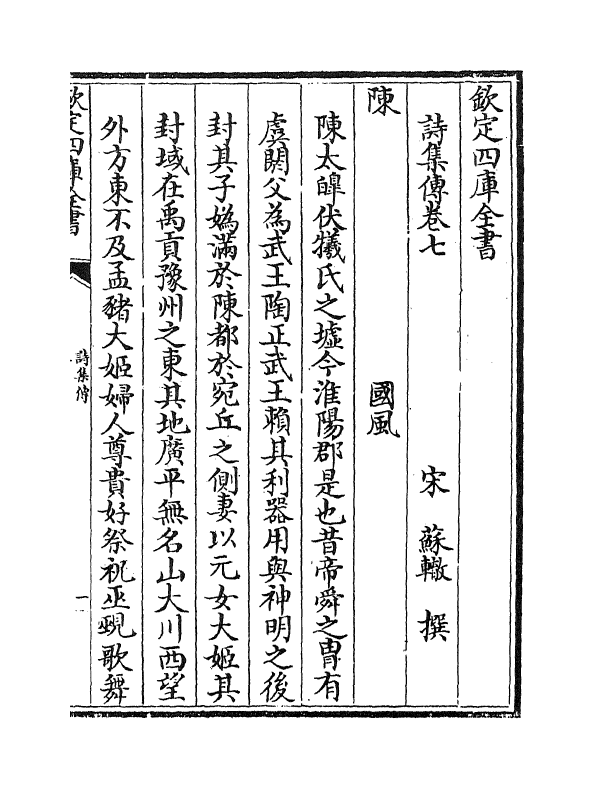 欽定四庫全書
詩集傳卷七
宋 蘇轍 撰
陳 國風
陳太皥伏犧氏之墟今淮陽郡是也昔帝舜之冑有
虞閼父為武王陶正武王賴其利器用與神明之後
封其子媯滿於陳都於宛丘之側妻以元女大姬其
封域在禹貢豫州之東其地廣平無名山大川西望
外方東不及孟豬大姬婦人尊貴好祭祝巫覡歌舞
欽定四庫全書
詩集傳
一